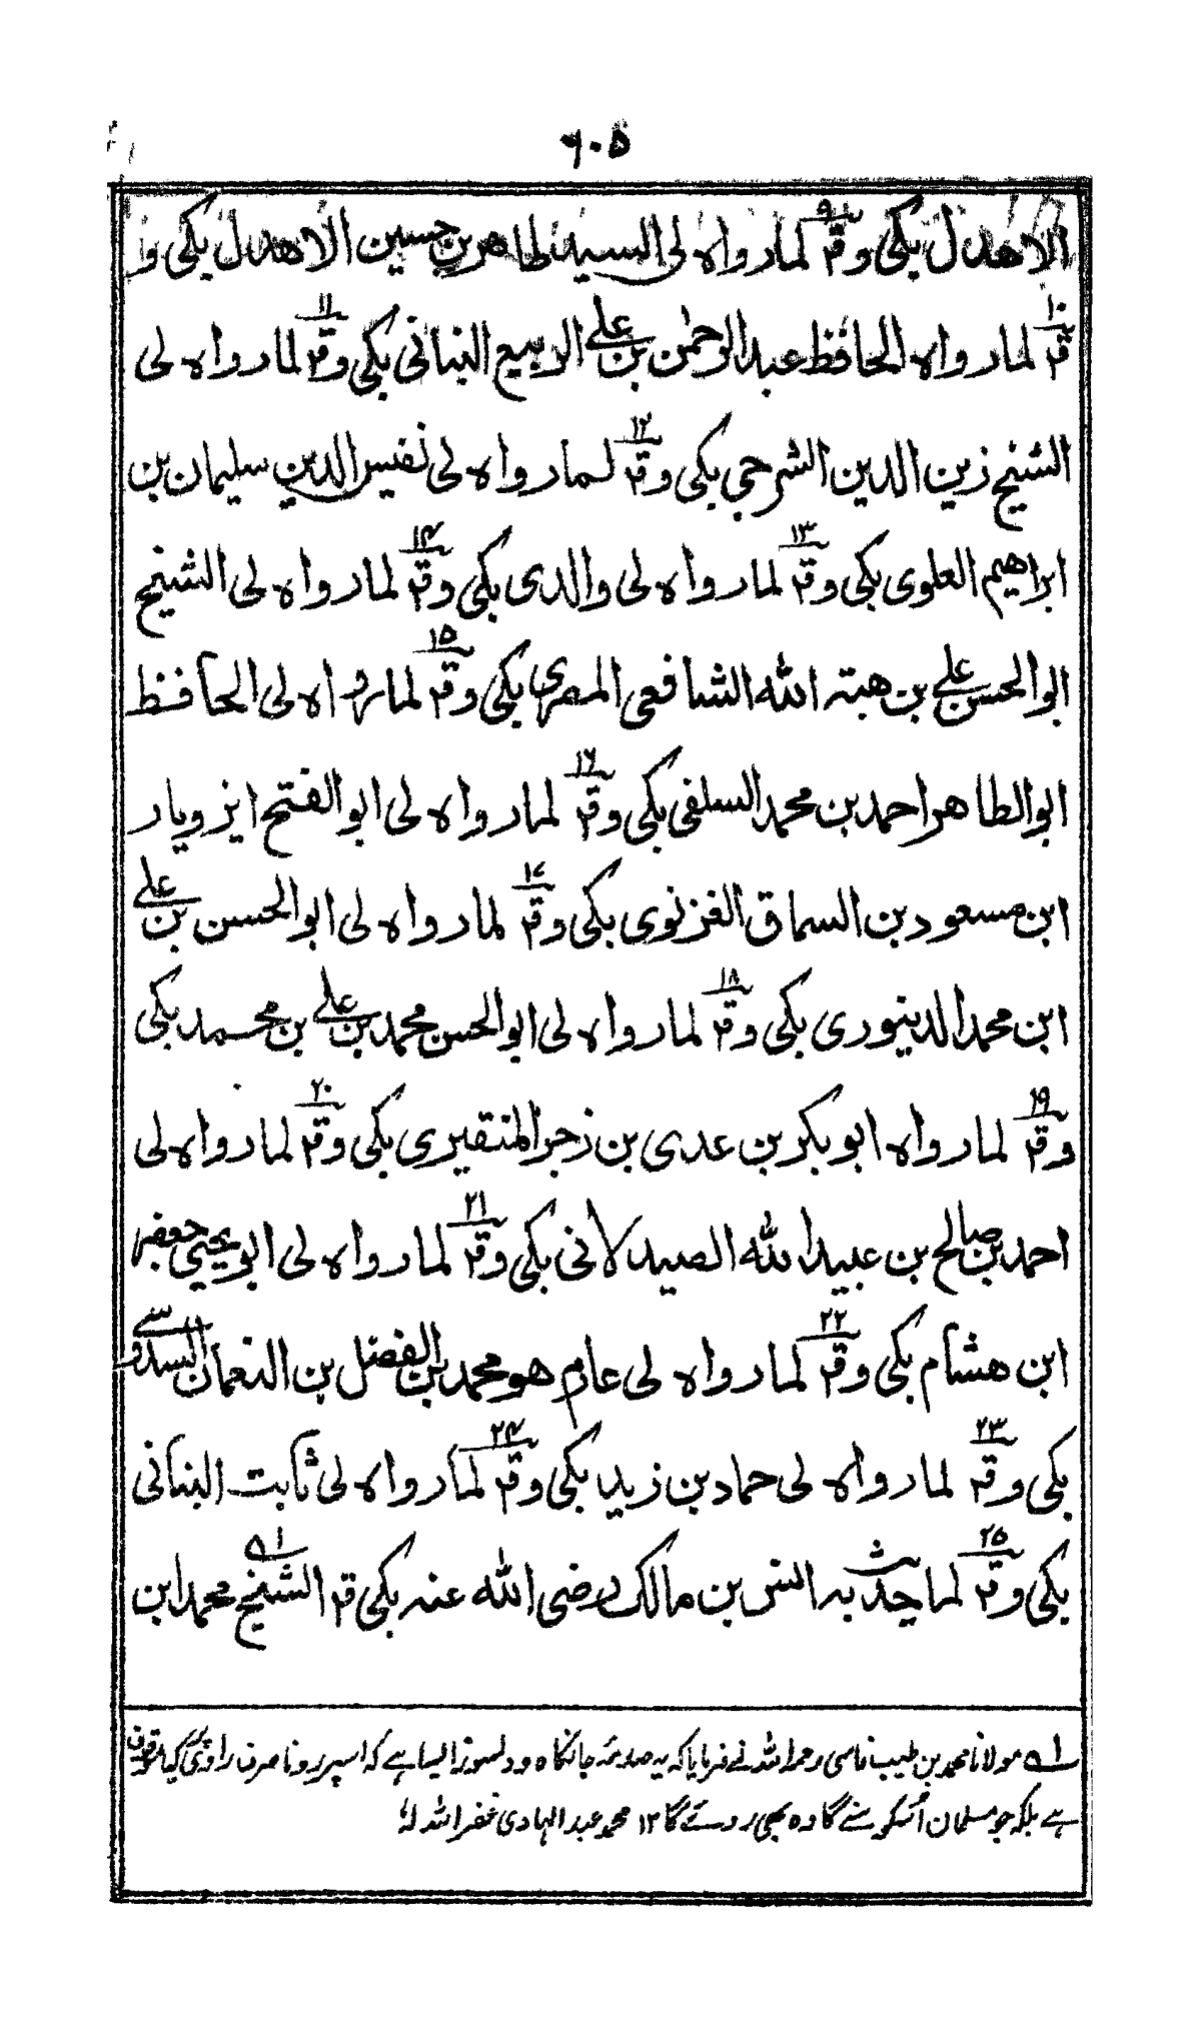 ۶۰۵
الاهدل بکی وقٓم۹ لما رواه لی السید طاهر بن حسین الاهدل بکی و
قٓم۱۰ لما رواه الحافظ عبد الرحمن بن علی الدبیع البنانی بکی وقٓم۱۱ لما رواه لی
الشیخ زین الدین الشرجی بکی وقٓم۱۲ لما رواه لی نفیس الدین سلیمان بن
ابراهیم العلوی بکی وقٓم۱۳ لما رواه لی والدی بکی وقٓم۱۴ لما رواه لی الشیخ
ابوالحسن علی بن هبته الله الشافعی المصری بکی وقٓم۱۵ لما رواه لی الحافظ
ابوالطاهر احمد بن محمد السلفی بکی وقٓم۱۶ لما رواه لی ابوالفتح ایزویار
ابن مسعود بن السماق الغزنوی بکی وقٓم۱۷ لما رواه لی ابوالحسن بن علی
ابن محمد الدینوری بکی وقٓم۱۸ لما رواه لی ابوالحسن محمد بن علی بن محمد بکی
وقٓم۱۹ لما رواه ابوبکر بن عدی بن زجر المنقیری بکی وقٓم۲۰ لما رواه لی
احمد بن صالح بن عبید الله الصیدلانی بکی وقٓم۲۱ لما رواه لی ابو یحیی جعفر
ابن هشام بکی وقٓم۲۲ لما رواه لی عارم هو محمد بن الفضل بن النعمان السدوسے
بکی وقٓم۲۳ لما رواه لی حماد بن زید بکی وقٓم۲۴ لما رواه لی ثابت البنانی
بکی وقٓم۲۵ لما حدث به انس بن مالک رضی الله عنه بکی قٓم الشیخ۱ه محمد ابن
۱ه مولانا محمد بن طیب فاسی رحمہ اللہ نے فرمایا کہ یہ صدمۂ جانکاہ و دلسوز ایسا ہے کہ اسپر رونا صرف راوی کیا
ہے بلکہ جو مسلمان اُسکو سنے گا وہ بھی روئے گا ۱۲ محمد عبد الہادی غفر اللہ لہٗ